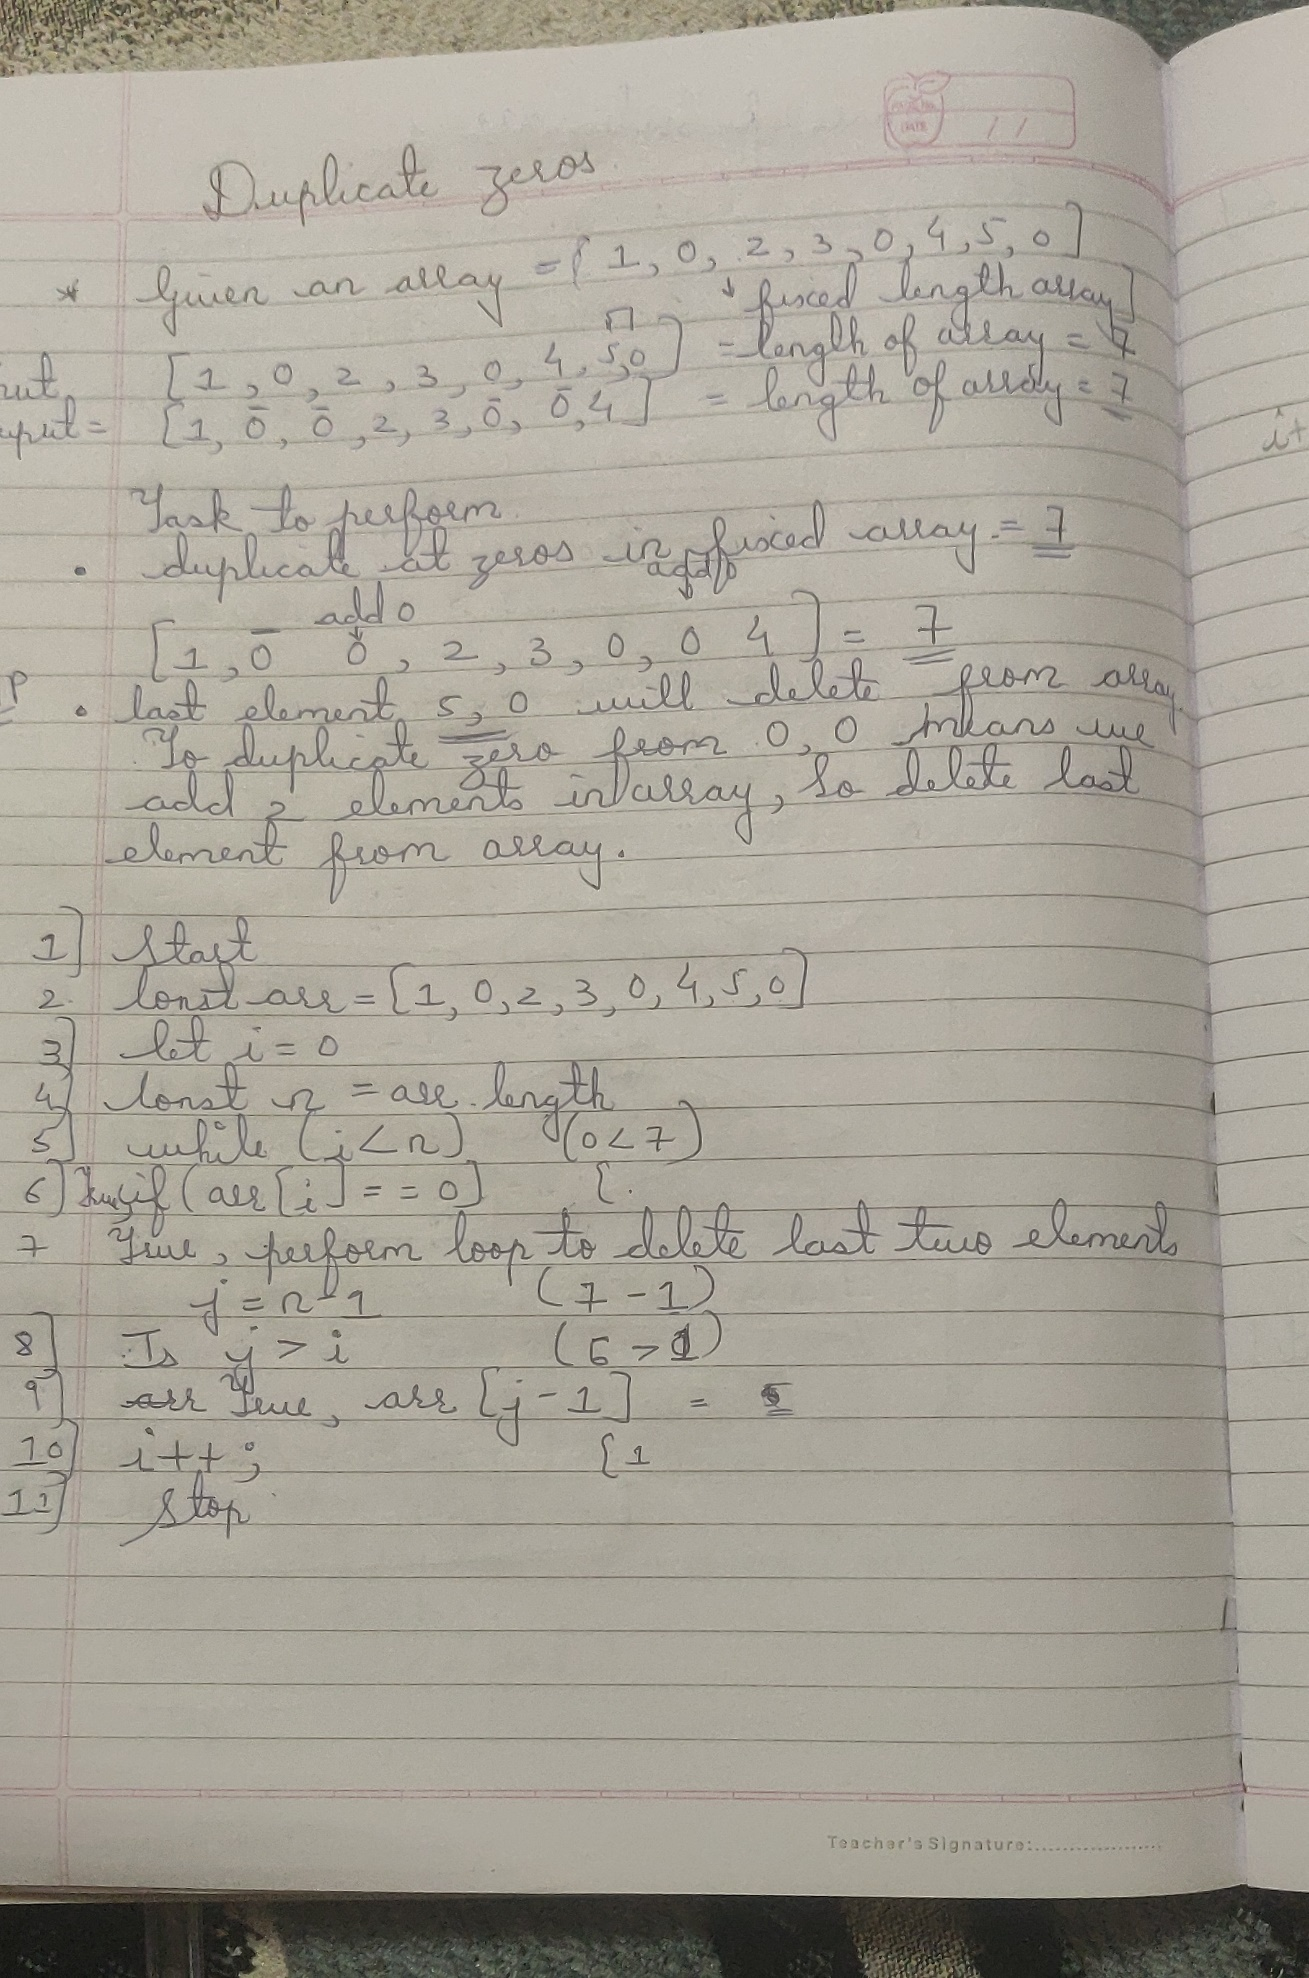 Duplicate zeros
* Given an array = [ 1, 0, 2, 3, 0, 4, 5, 0 ]
↓ fixed length array]
[ 1, 0, 2, 3, 0, 4, 5, 0 ] = length of array = 7
[ 1, 0, 0, 2, 3, 0, 0, 4 ] = length of array = 7
Task to perform
• duplicate at zeros in fixed array = 7
add 0
[ 1, 0 0, 2, 3, 0, 0 4 ] = 7
• last element 5, 0 will delete from array
To duplicate zero from 0, 0 means we
add 2 elements in array, So delete last
element from array.
1] Start
2. const arr = [1, 0, 2, 3, 0, 4, 5, 0]
3] let i = 0
4] const n = arr.length
5] while (i < n) (0 < 7)
6] if (arr[i] == 0]
7 True, perform loop to delete last two elements
j = n - 1 (7 - 1)
8] Is j > i (6 > 1)
9] arr True, arr [j - 1] = 5
10] i++; {1
11] Stop
i+
Teacher's Signature: